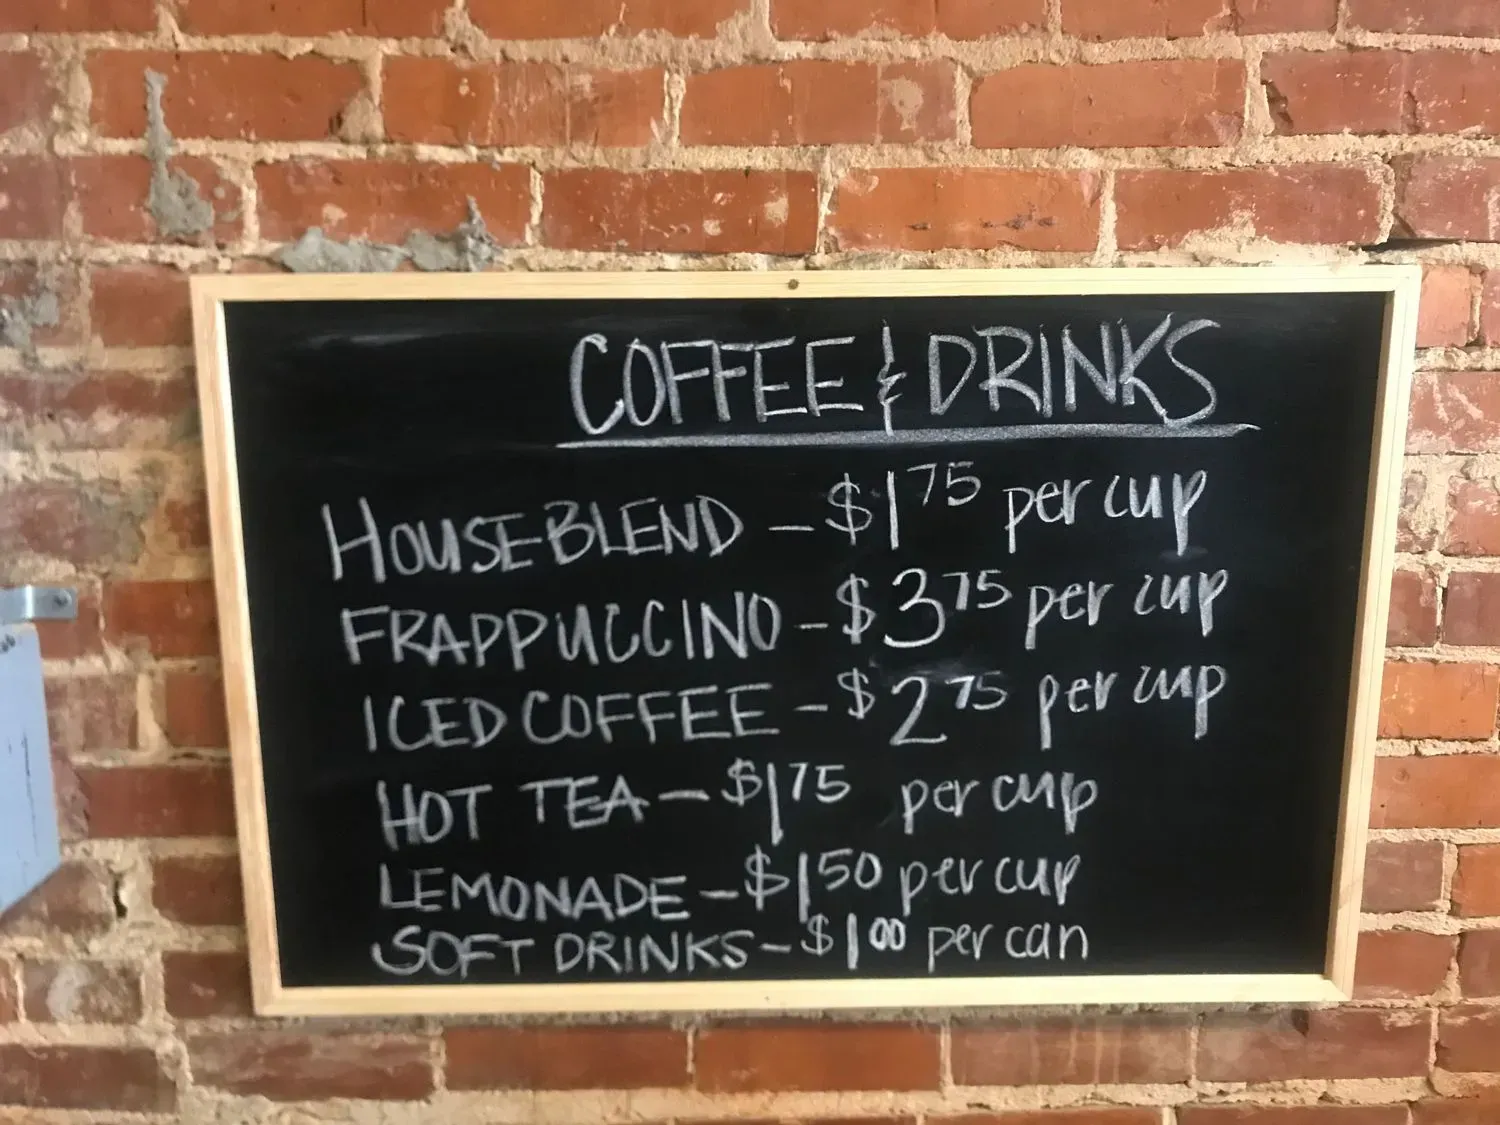 COFFEE & DRINKS
HOUSE BLEND - $1.75 per cup
FRAPPUCCINO - $3.75 per cup
ICED COFFEE - $2.75 per cup
HOT TEA - $1.75 per cup
LEMONADE - $1.50 per cup
SOFT DRINKS - $1.00 per can